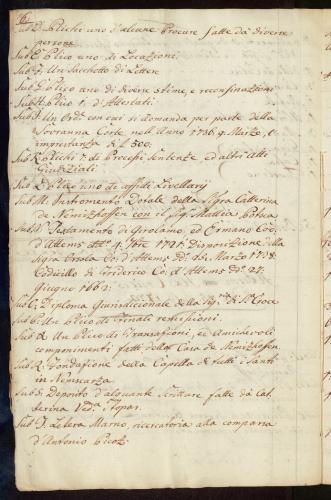 Sub D. Plichi uno d'alcune Procure fatte da diverse
persone
Sub E. Plico uno di Locazioni.
Sub F. Un Sacchetto di Lettere
Sub G. Plico uno di diverse stime, e reconfinazioni
Sub H. Plico 1. d'Attestati.
Sub I. Un Ord. con cui si domanda per parte della
Sovranna Corte nell'anno 1736 9. Marzo,
imprestanza di £ 500.
Sub K. Plichi 7. di Processi Sentenze, ed altri Atti
Giudiziali
Sub L. Plico uno di affitti Livellarij
Sub M. Instromento Dotale della Sigra Catterina
de Nemizhoffen con il Sigr Mattia
Sub N. Testamento di Girolamo, ed Ermano Co:
d'Attems 4. 1721. Disposizione della
Sigra Orsola Co: d'Attems dd. 16. Marzo 1738.
Codicillo di Friderico Co. d'Attems dd. 27.
Giugno 1662.
Sub O. Diploma Giurisdizionale della di S. Croce
Sub P. Un Plico di finali remissioni.
Sub Q. Un Plico di Transazioni, ed Amichevoli
componimenti fatti della Casa de Nemizhoffen
Sub R. Fondazione della Capella di tutti i Santi
in
Sub S. Deposito d'alquante Scritture fatte da Cat-
terina Veda
Sub T. Letera Marno, ricercatoria alla comparsa
d'Antonio